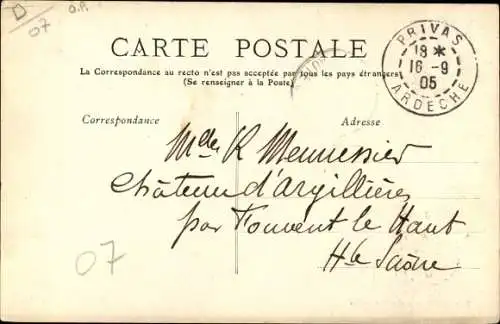 D
07
O.P.
CARTE POSTALE
La Correspondance au recto n'est pas acceptée par tous les pays étrangers
(Se renseigner à la Poste)
PRIVAS
18 *
16 - 9
05
ARDECHE
Correspondance
Adresse
Mde R Mennessier
Château d'Argillières
par Fouvent le Haut
Hte Saône
07